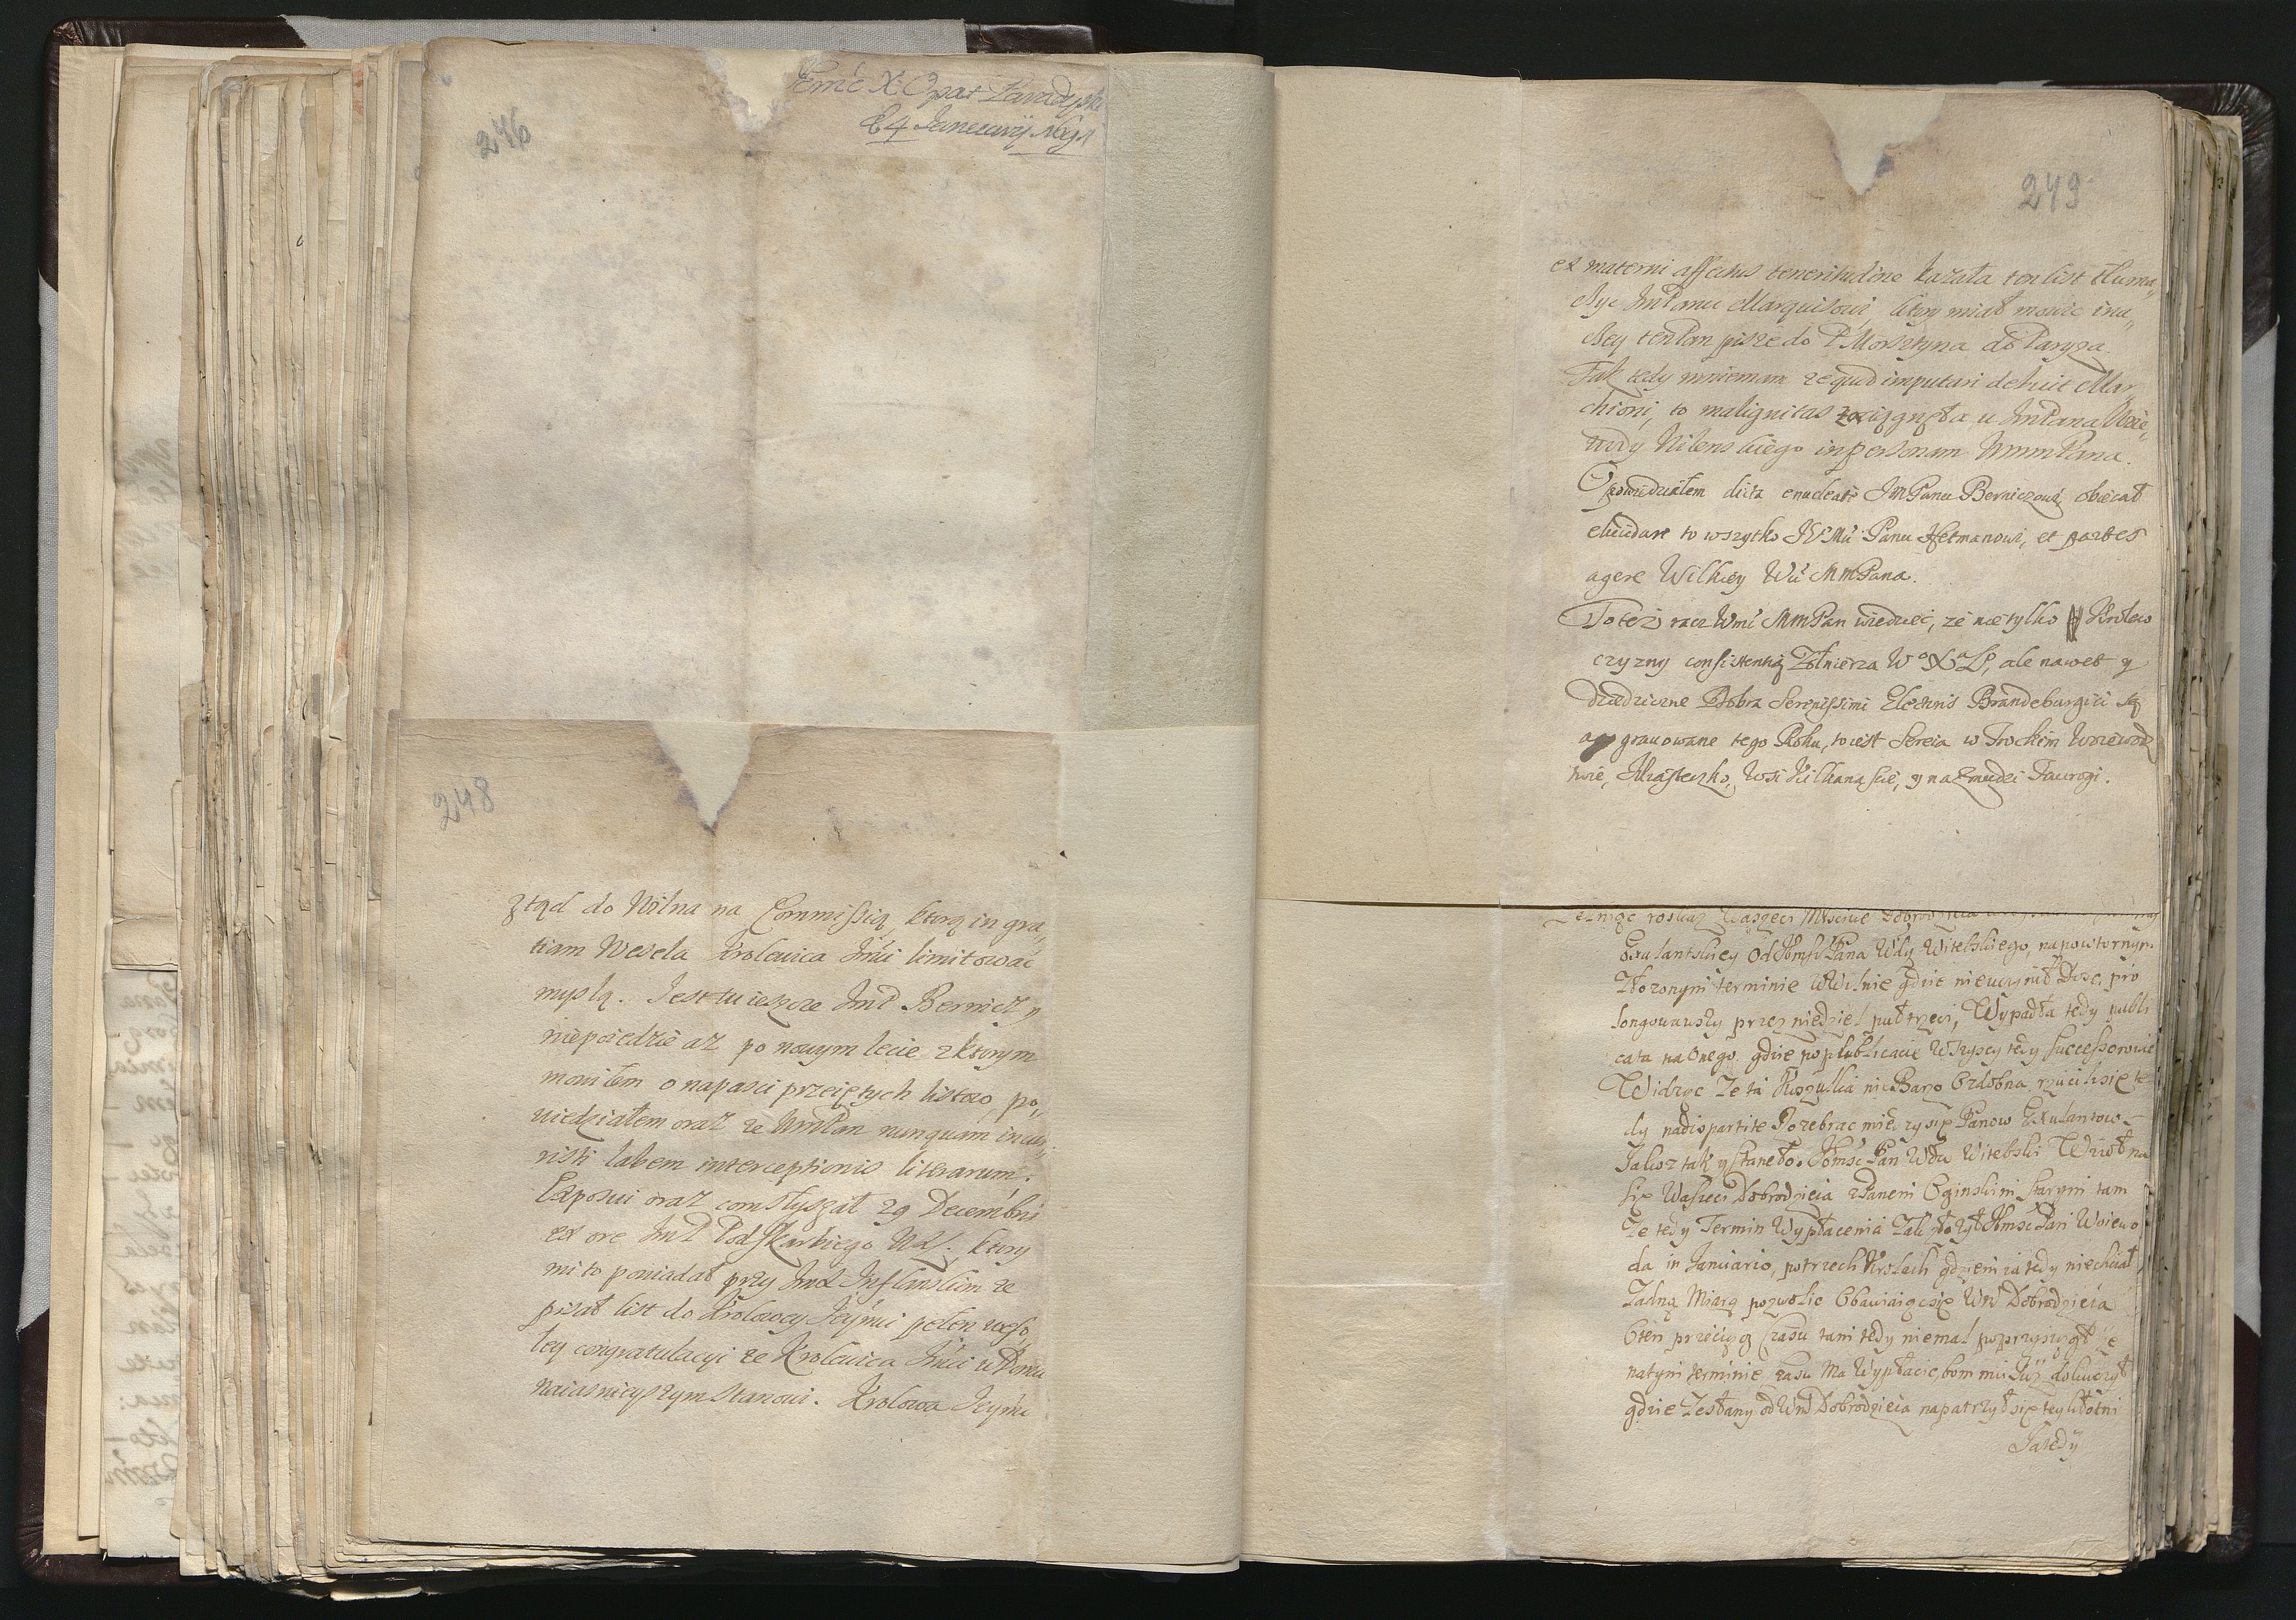 246
Jemć X: Opat Paradyski
14 Januarij 1691
248
ztąd do Wilna na Commissią, ktorą in gra„
tiam Wesela Krolewica Jmći limitować
myslą. Jest tu ieszcze JmP Bernicz y
niepoiedzie aż po nowym lecie z ktorym
mowiłem o napasci przeiętych listow, po„
wiedziałem oraz ze WmPan nunquam incur„
risti labem interceptionis literarum.
Exposui oraz com słyszał 29 Decembris
ex ore JmP Podskarbiego WXL. ktory
mi to powiadał przy JmX Inflanskim ze
pisał list do Krolowey Jeymci pełen weso„
łey congratulacyi ze Krolewica Jmći w Domu
naiasnieyszym stanowi. Krolowa Jeymć
249
ex materni affectus teneritudine kazała ten list tłuma„
czyc JmPanu Marquisowi, ktory miał mowic ina„
czey ten Pan pisze do P Morsztyna do Paryza.
Tak tedy mniemam ze quod imputari debuit Mar„
chioni, to malignitas zaciągnęła u JmPana Woie„
wody Wilenskiego in personam WmmPana.
Opowiedziałem dicta enucleate JmPanu Berniczowi, obiecał
elucidare to wszytko JKMći Panu Hetmanowi, et partes
agere Wilkiey Wć MmPana.
To też racz Wmć MmPan wiedziec, ze nie tylko Krolew
czyzny consistentią Zołnierza Wº Xª Lº, ale nawet y
Dziedziczne Dobra Serenissimi Electoris Brandeburgici są
aggrauowane tego Roku, to iest Sereia w Trockim Woiewodz
twie, Miasteczko, Wsi Kilkanascie, y na Zmudzi Taurogi.
Exulantskiey Od JKmsci Pana Wdy Witebskiego, na powtornym
Złozonym terminie w Wilnie gdzie nieuczynił Dosc, pro
longowawszy przez niedziel puł trzeci, Wypadła tedy publi
cata na Onego. gdzie po publicacie Wszyscy tedy successorowie
Widząc Ze ta Kuszulka nie Barzo Ozdobna rzucili się te
dy na dispartite Rozebrac miedzy się Panow Exulantow
Jakosz tak y stanęło. Jomsć Pan Wda Witebski Wziął na
się Waszeci Dobrodzieia z Panem Oginskim Starym tam
Ze tedy Termin Wypłacenia Założył Jomsć Pan Woiewo
da in Januario, po trzech Krolach gdziem ia tedy niechciał
Zadną Miarą pozwolic Obawiaiąc się Wm Dobrodzieia
O ten przeciąg Czasu tam tedy niemal poprzysiągł ze
na tym terminie czasu Ma Wypłacic, bom mu Już dokuczył
gdzie Zesłany od Wm Dobrodzieia napatrzył się tey kłotni
Ja tedy